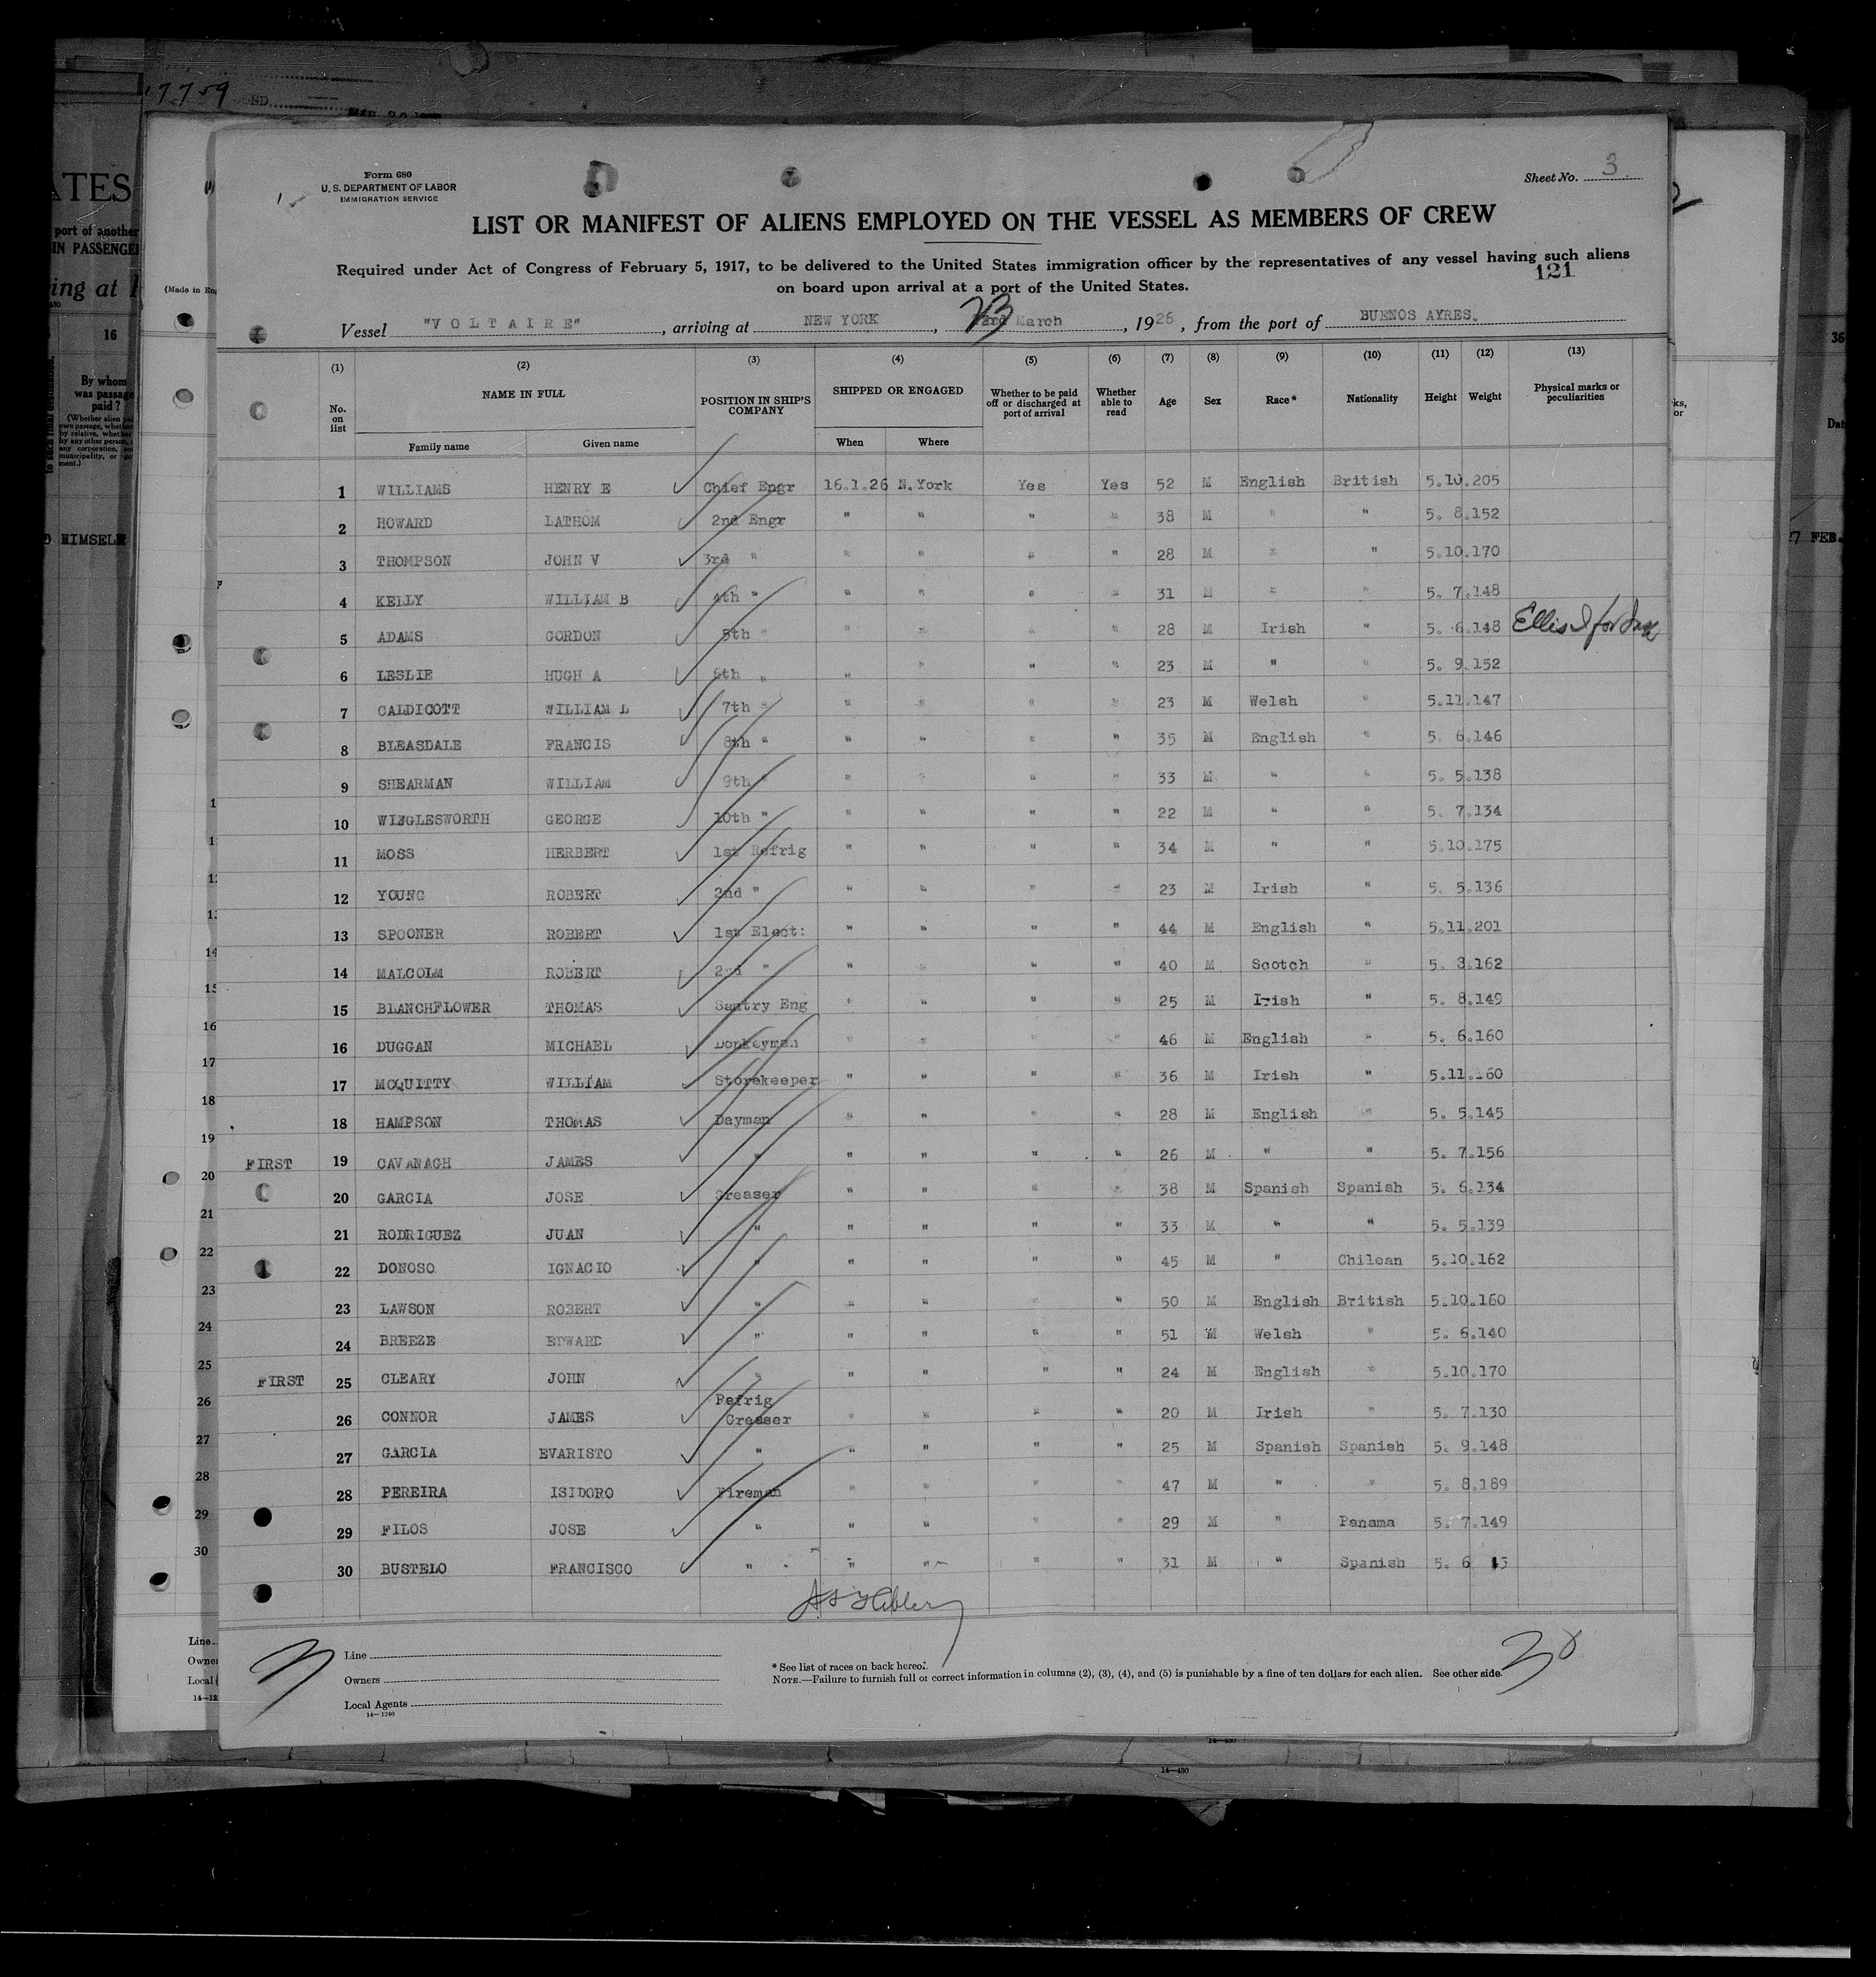 17759
ED
ATES
port of another
IN PASSENGE
ing at
16
By whom
was passage
paid ?
HIMSELF
(Made in En
Form 680
U. S. DEPARTMENT OF LABOR
IMMIGRATION SERVICE
Sheet No. 3
LIST OR MANIFEST OF ALIENS EMPLOYED ON THE VESSEL AS MEMBERS OF CREW
Required under Act of Congress of February 5, 1917, to be delivered to the United States immigration officer by the representatives of any vessel having such aliens
on board upon arrival at a port of the United States.
121
Vessel "VOLTAIRE", arriving at NEW YORK, 23 March, 1926, from the port of BUENOS AYRES.
(1) (2) (3) (4) (5) (6) (7) (8) (9) (10) (11) (12) (13)
No. on list NAME IN FULL POSITION IN SHIP'S COMPANY SHIPPED OR ENGAGED Whether to be paid off or discharged at port of arrival Whether able to read Age Sex Race* Nationality Height Weight Physical marks or peculiarities
Family name Given name When Where
1 WILLIAMS HENRY E Chief Engr 16.1.26 N.York Yes Yes 52 M English British 5.10.205
2 HOWARD LATHOM 2nd Engr " " " " 38 M " " 5. 8.152
3 THOMPSON JOHN V 3rd " " " " " 28 M " " 5.10.170
4 KELLY WILLIAM B 4th " " " " " 31 M " " 5. 7.148
5 ADAMS GORDON 5th " " " " " 28 M Irish " 5. 6.148 Ellis I for
6 LESLIE HUGH A 6th " " " " " 23 M " " 5. 9.152
7 CALDICOTT WILLIAM L 7th " " " " " 23 M Welsh " 5.11.147
8 BLEASDALE FRANCIS 8th " " " " " 35 M English " 5. 6.146
9 SHEARMAN WILLIAM 9th " " " " " 33 M " " 5. 5.138
10 WIGGLESWORTH GEORGE 10th " " " " " 22 M " " 5. 7.134
11 MOSS HERBERT 1st Refrig " " " " 34 M " " 5.10.175
12 YOUNG ROBERT 2nd " " " " " 23 M Irish " 5. 5.136
13 SPOONER ROBERT 1st Elect: " " " " 44 M English " 5.11.201
14 MALCOLM ROBERT 2nd " " " " " 40 M Scotch " 5. 8.162
15 BLANCHFLOWER THOMAS Santry Eng " " " " 25 M Irish " 5. 8.149
16 DUGGAN MICHAEL Donkeyman " " " " 46 M English " 5. 6.160
17 MCQUITTY WILLIAM Storekeeper " " " " 36 M Irish " 5.11.160
18 HAMPSON THOMAS Dayman " " " " 28 M English " 5. 5.145
FIRST 19 CAVANAGH JAMES " " " " " 26 M " " 5. 7.156
20 GARCIA JOSE Greaser " " " " 38 M Spanish Spanish 5. 6.134
21 RODRIGUEZ JUAN " " " " " 33 M " " 5. 5.139
22 DONOSO IGNACIO " " " " " 45 M " Chilean 5.10.162
23 LAWSON ROBERT " " " " " 50 M English British 5.10.160
24 BREEZE EDWARD " " " " " 51 M Welsh " 5. 6.140
FIRST 25 CLEARY JOHN " " " " " 24 M English " 5.10.170
26 CONNOR JAMES Refrig Greaser " " " " 20 M Irish " 5. 7.130
27 GARCIA EVARISTO " " " " " 25 M Spanish Spanish 5. 9.148
28 PEREIRA ISIDORO Fireman " " " " 47 M " " 5. 8.189
29 FILOS JOSE " " " " " 29 M " Panama 5. 7.149
30 BUSTELO FRANCISCO " " " " " 31 M " Spanish 5. 6
Line
Owners
Local Agents
14—1240
* See list of races on back hereof.
NOTE.—Failure to furnish full or correct information in columns (2), (3), (4), and (5) is punishable by a fine of ten dollars for each alien. See other side.
30
14—430
36
Dat
7 FEB.